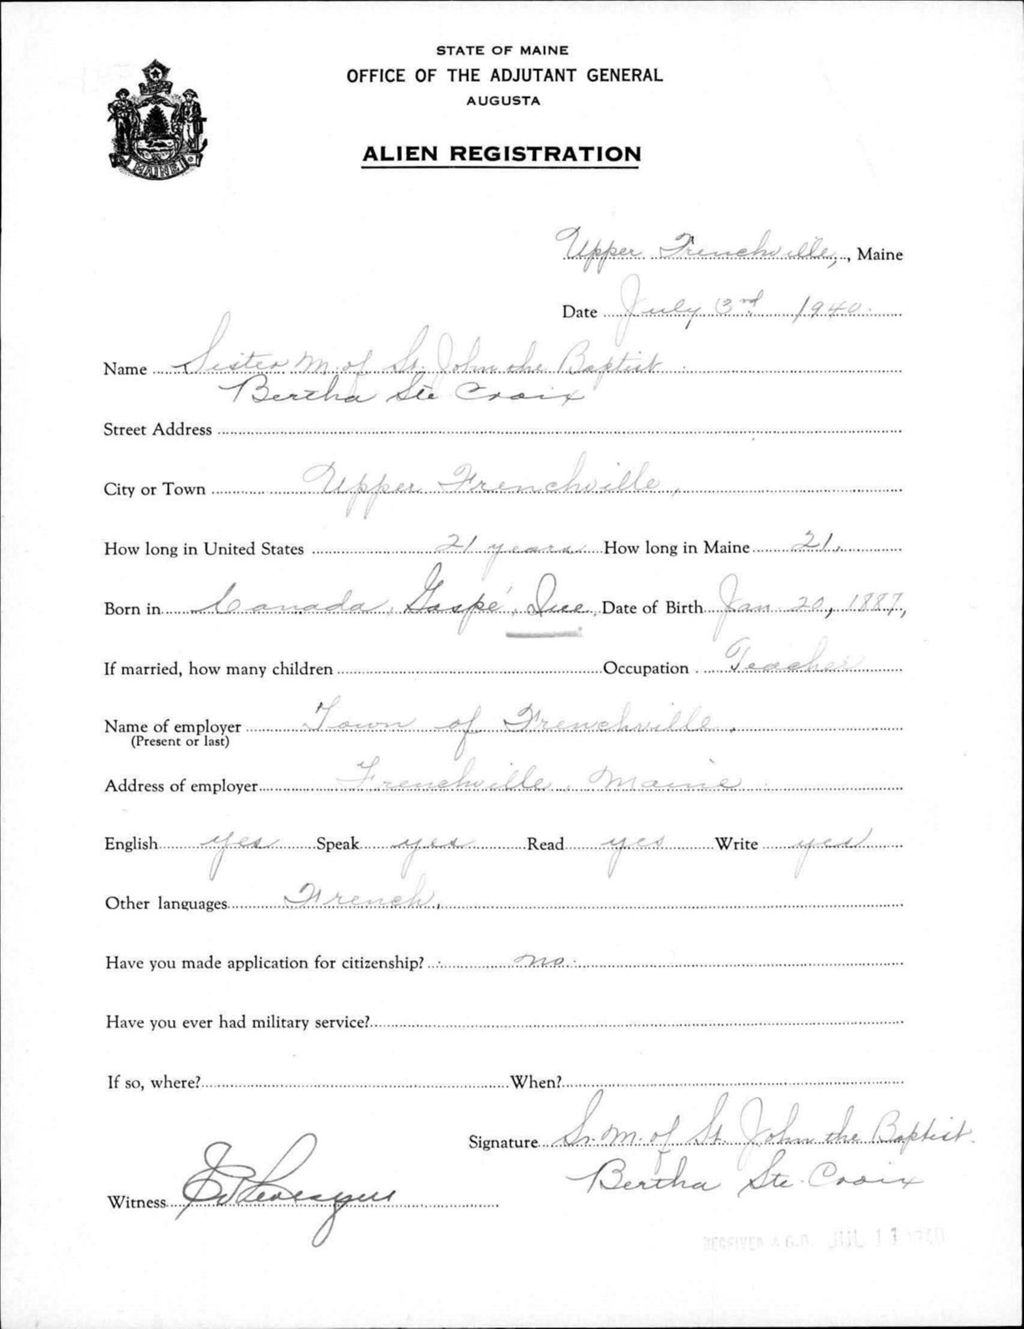 STATE OF MAINE
OFFICE OF THE ADJUTANT GENERAL
AUGUSTA
ALIEN REGISTRATION
MAINE
Upper Frenchville, Maine
Date July 3rd 1940.
Name Sister M. of St. John the Baptist
Bertha Ste Croix
Street Address
City or Town Upper Frenchville,
How long in United States 21 years How long in Maine 21.
Born in Canada, Gaspé, Que, Date of Birth Jan. 20, 1887,
If married, how many children Occupation Teacher
Name of employer Town of Frenchville.
(Present or last)
Address of employer Frenchville, Maine
English yes Speak yes Read yes Write yes
Other languages French,
Have you made application for citizenship? no.
Have you ever had military service?
If so, where? When?
Signature Sr. M. of St. John the Baptist.
Bertha Ste. Croix
Witness
RECEIVED A.G.O. JUL 1940